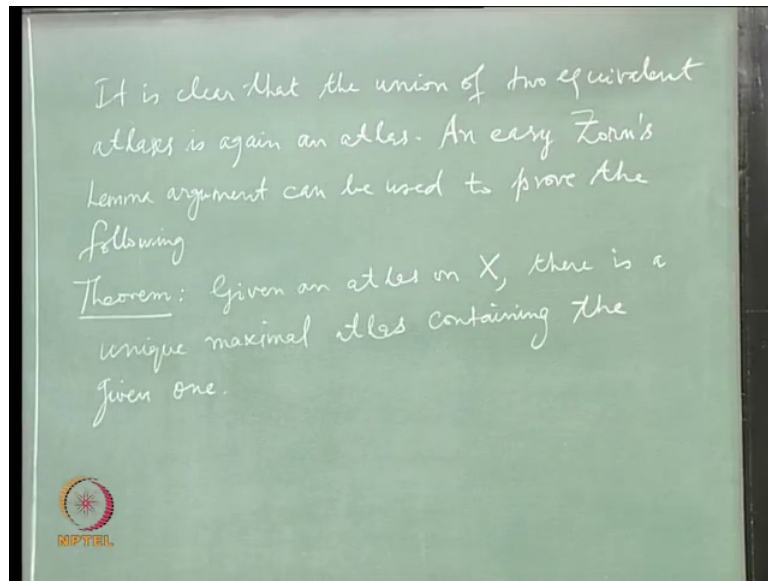 It is clear that the union of two equivalent
atlases is again an atlas. An easy Zorn's
Lemma argument can be used to prove the
following
Theorem: Given an atlas on X, there is a
unique maximal atlas containing the
given one.
NPTEL